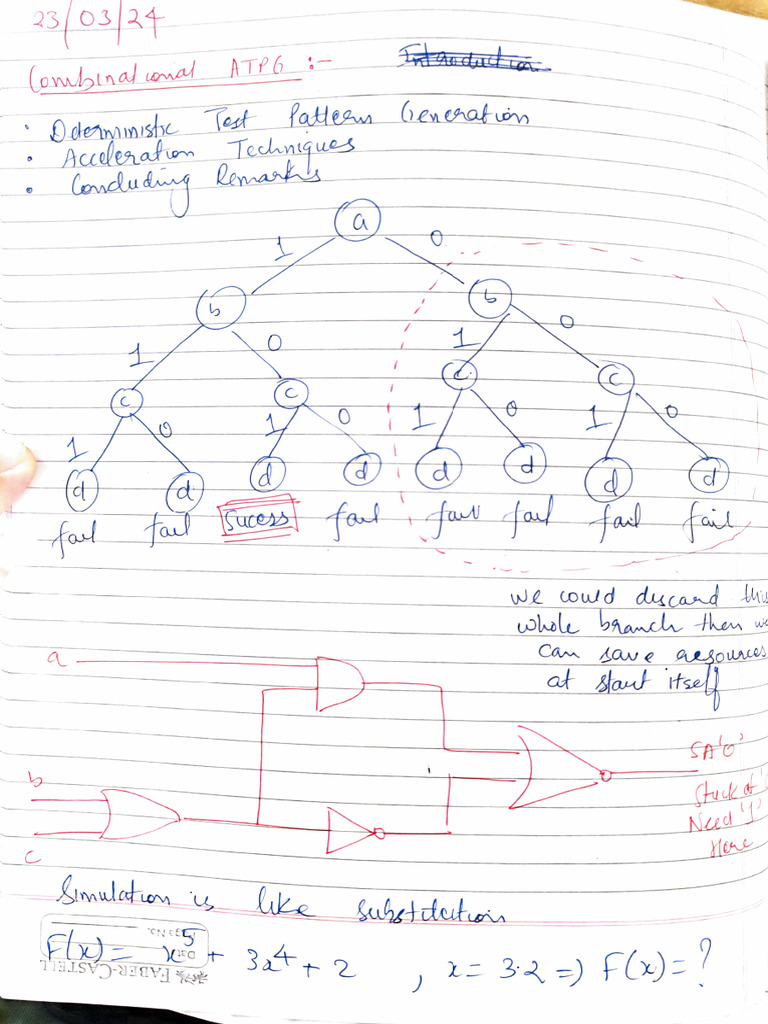 23/03/24
Combinational ATPG :-
Introduction
• Deterministic Test Pattern Generation
• Acceleration Techniques
• Concluding Remarks
a
1 0
b b
1 0 1 0
c c c c
1 0 1 0 1 0 1 0
d d d d d d d d
fail fail Sucess fail fail fail fail fail
we could discard this
whole branch then we
can save resources
at start itself
a
SA'0'
b
Stuck at
Need '1'
Here
c
Simulation is like substitution
F(x) = x⁵ + 3x⁴ + 2 , x = 3.2 => F(x) = ?
Page No.
Date
FABER-CASTELL